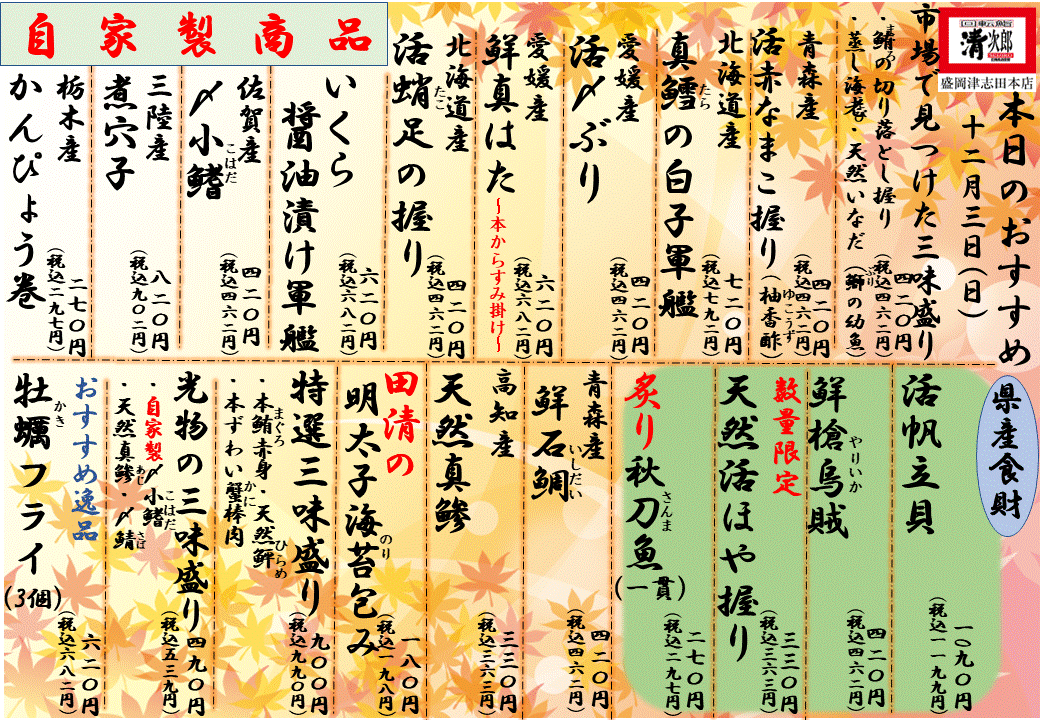 回転鮨
清次郎
盛岡津志田本店
本日のおすすめ
十二月三日(日)
市場で見つけた三味盛り
・鯖の切り落とし握り
・蒸し海老・天然いなだ(鰤の幼魚)
四二〇円
(税込四六二円)
青森産
活赤なまこ握り(柚香酢)
四二〇円
(税込四六二円)
北海道産
真鱈の白子軍艦
七二〇円
(税込七九二円)
愛媛産
活〆ぶり
愛媛産
鮮真はた
~本からすみ掛け~
六二〇円
(税込六八二円)
北海道産
活蛸足の握り
四二〇円
(税込四六二円)
自家製商品
いくら
醤油漬け軍艦
六二〇円
(税込六八二円)
佐賀産
〆小鰭
四二〇円
(税込四六二円)
三陸産
煮穴子
八二〇円
(税込九〇二円)
栃木産
かんぴょう巻
二七〇円
(税込二九七円)
県産食財
活帆立貝
一〇九〇円
(税込一一九九円)
鮮槍烏賊
四二〇円
(税込四六二円)
数量限定
天然活ほや握り
三三〇円
(税込三六三円)
炙り秋刀魚(一貫)
二七〇円
(税込二九七円)
青森産
鮮石鯛
四二〇円
(税込四六二円)
高知産
天然真鯵
三三〇円
(税込三六三円)
田清の
明太子海苔包み
一八〇円
(税込一九八円)
特選三味盛り
・本鮪赤身・天然鮃
・本ずわい蟹棒肉
九〇〇円
(税込九九〇円)
光物の三味盛り
・自家製〆小鰭
・天然真鯵・〆鯖
四九〇円
(税込五三九円)
おすすめ逸品
牡蠣フライ(3個)
六二〇円
(税込六八二円)